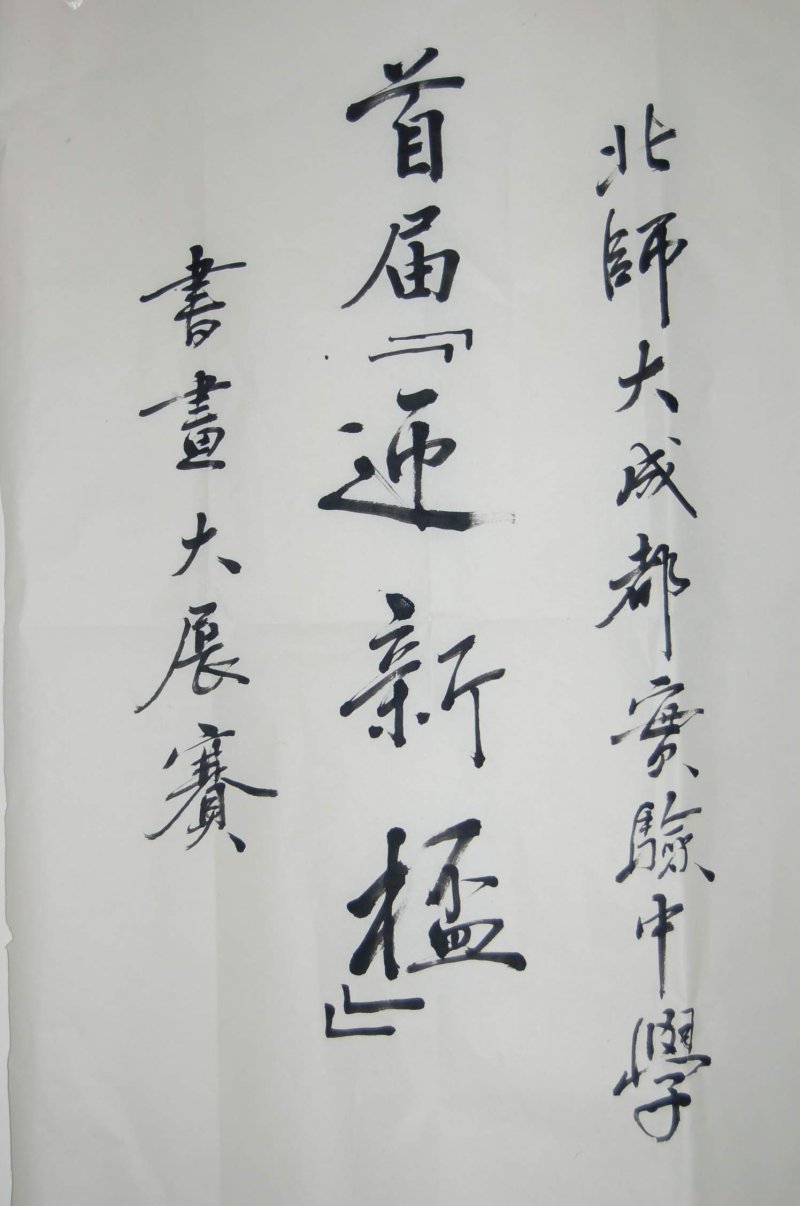 北師大成都實驗中學
首届『迎新桮』
書畫大展賽